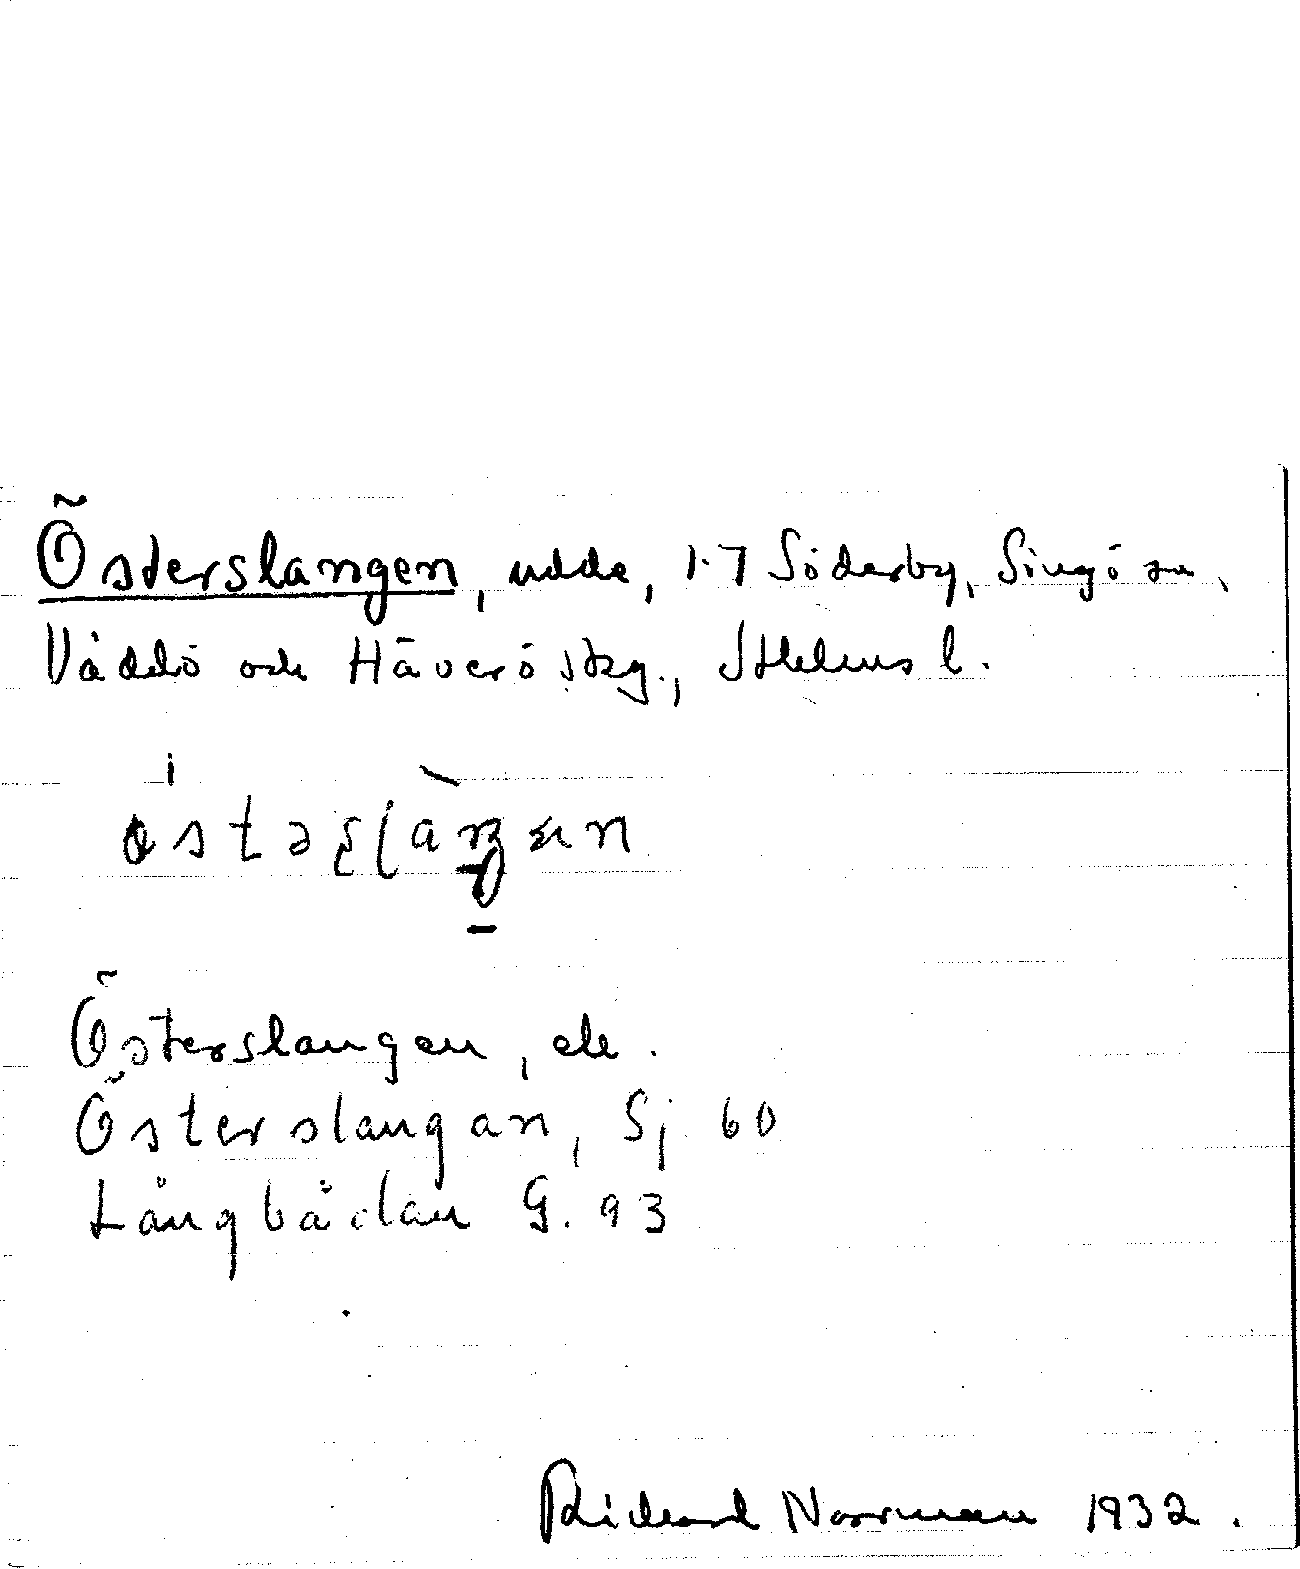 Österslangen, udde, 1-7 Söderby, Singö sn,
Väddö och Häverö skg., Sthlms l.
Österslangen, ek.
Österslangan, Sj 60
Långbådan G. 93
Richard Norrman 1932.